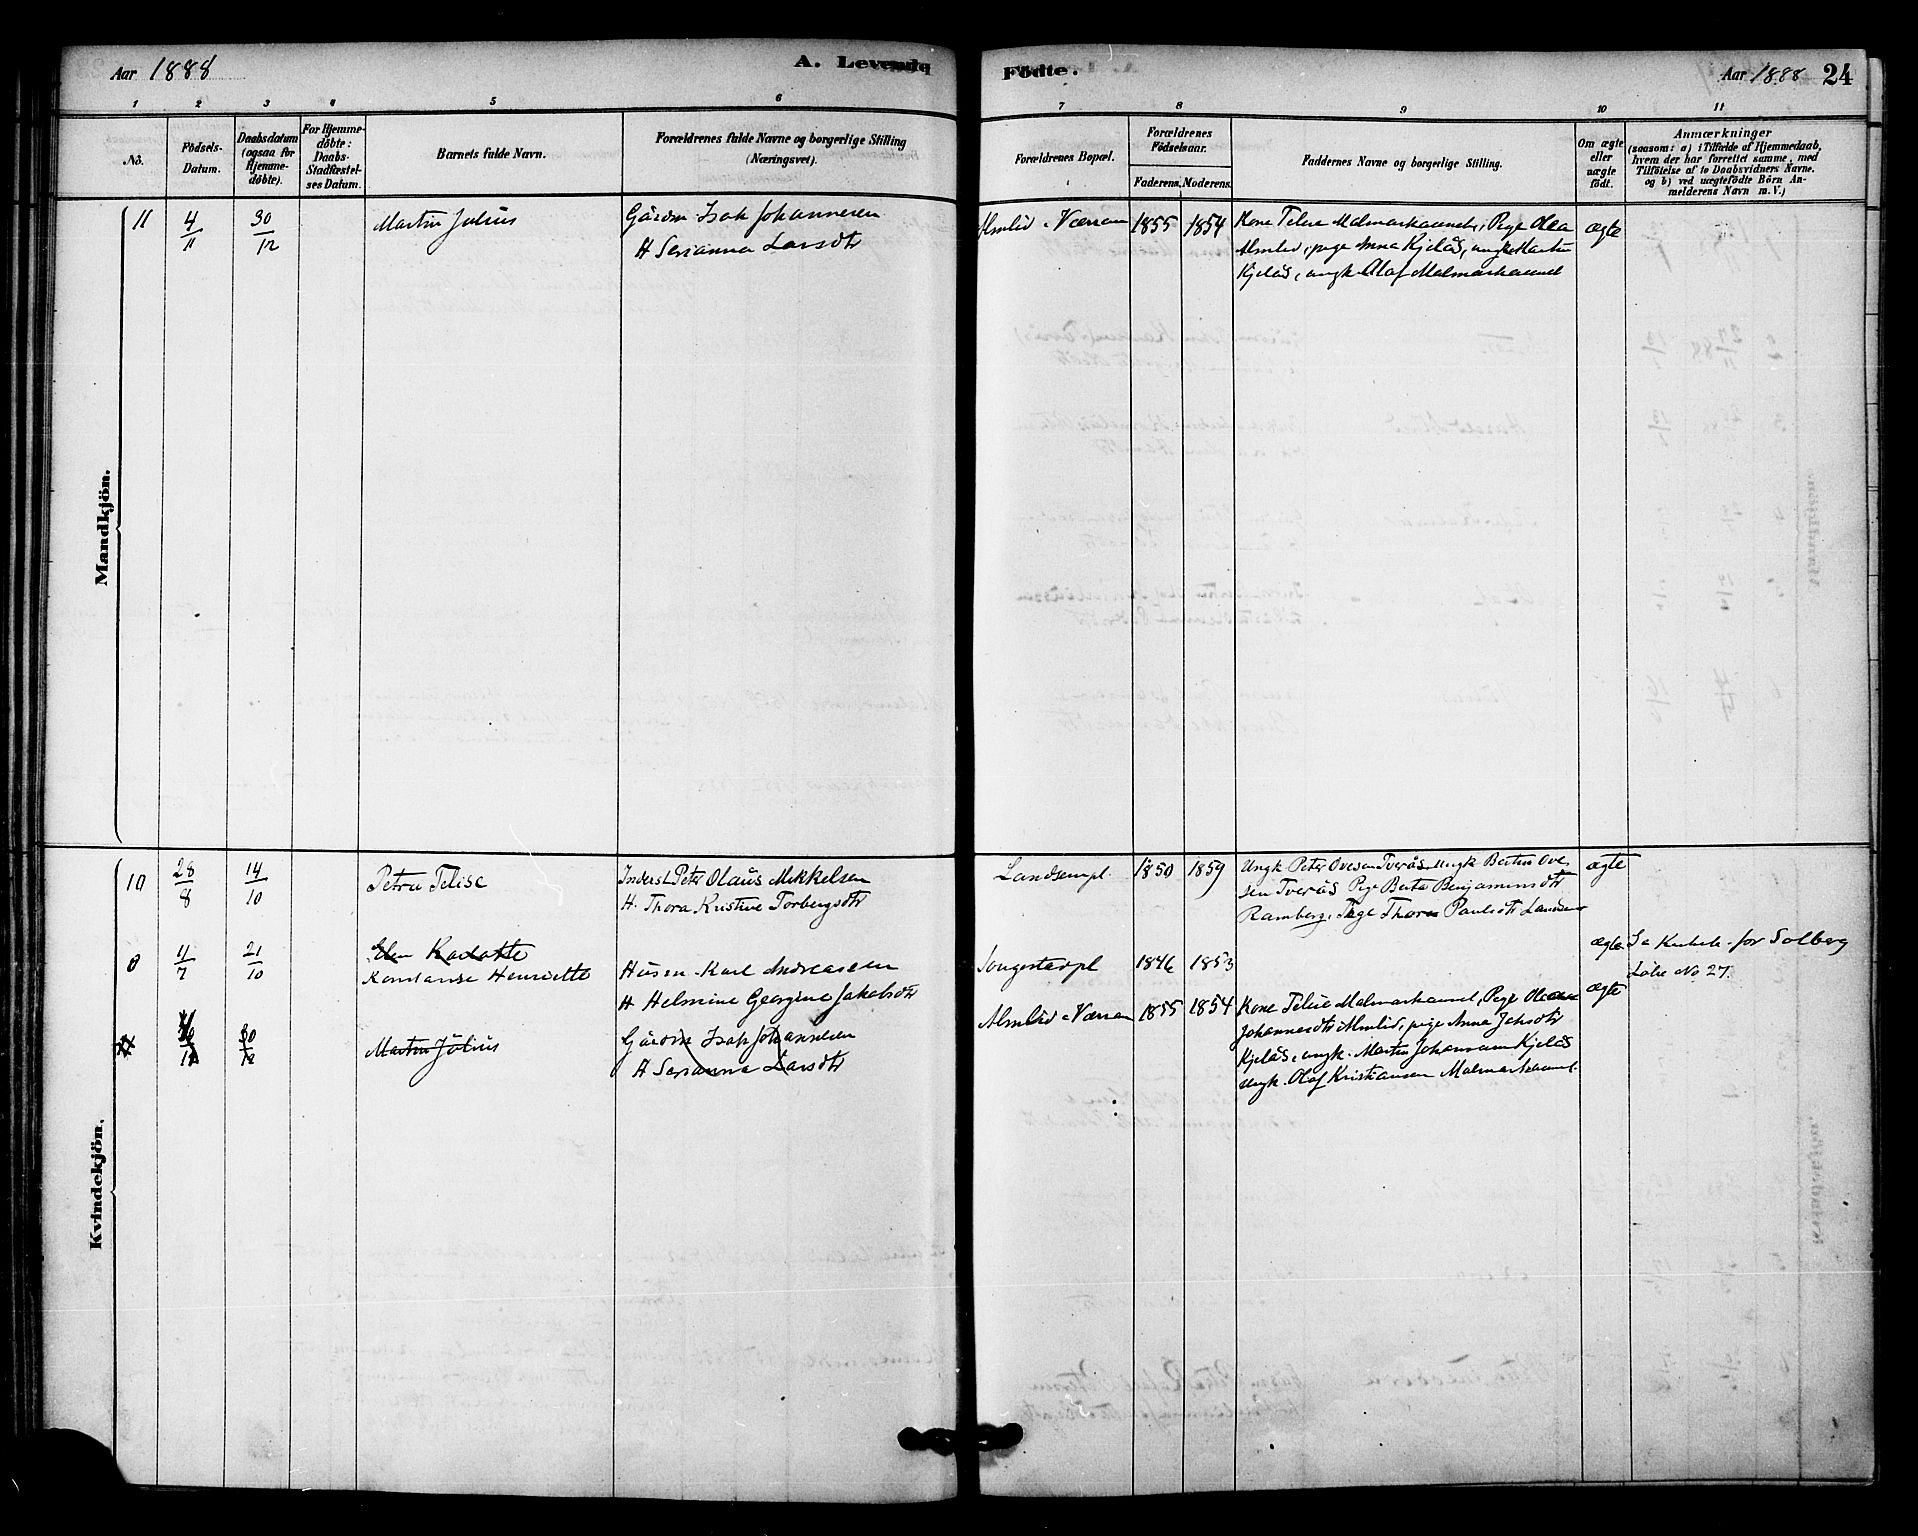 Aar 1888
A. Levende
Födte.
Aar 1888 24
1 2 3 4 5 6 7 8 9 10 11
No.
Födsels-
Datum.
Daabsdatum
(ogsaa for
Hjemme-
døbte).
For Hjemme-
døbte:
Daabs-
Stadfæstel-
ses Datum.
Barnets fulde Navn.
Forældrenes fulde Navne og borgerlige Stilling
(Næringsvei).
Forældrenes Bopæl.
Forældrenes
Födselsaar.
Faderens. Moderens.
Faddernes Navne og borgerlige Stilling.
Om ægte
eller
uægte
födt.
Anmærkninger
(saasom: a) i Tilfælde af Hjemmedaab,
hvem der har forrettet samme, med
Tilföielse af to Daabsvidners Navne.
og b) ved uægtefödte Börn An-
melderens Navn m. V.)
Mandkjön.
11 4/11 30/12 Martin Julius Gårdm Isak Johannesen Almlid Værran 1855 1854 Kone Telise Malmarkaunet, Pige Olea ægte
H Serianna Larsdtr Almlid, pige Anna Kjelås, ungk Martin
Kjelås, ungk Olaf Malmarkaunet
Kvindekjön.
10 28/8 14/10 Petra Telise Inderst Peter Olaus Mikkelsen Landsempl. 1850 1859 Ungk Peter Ovesen Tverås ungk Bertin Ove- ægte
H. Thora Kristine Torbergsdtr sen Tverås Pige Berta Benjaminsdtr
Ramberg, Pige Thora Paulsdtr Landsem
0 11/7 21/10 Konstanse Henriette Husm. Karl Andreassen 1846 1853 ægte for Solberg
H Helmine Georgine Jakobsdtr Löbe No 27.
30/12 Martin Julius Gårdm Isak Johannesen Almlid Værran 1855 1854 Kone Telise Malmarkaunet, Pige ægte
H Serianna Larsdtr Johannesdtr Almlid, pige Anna
Kjelås, ungk. Martin Johansen Kjelås
ungk. Olaf Kristiansen Malmarkaunet.